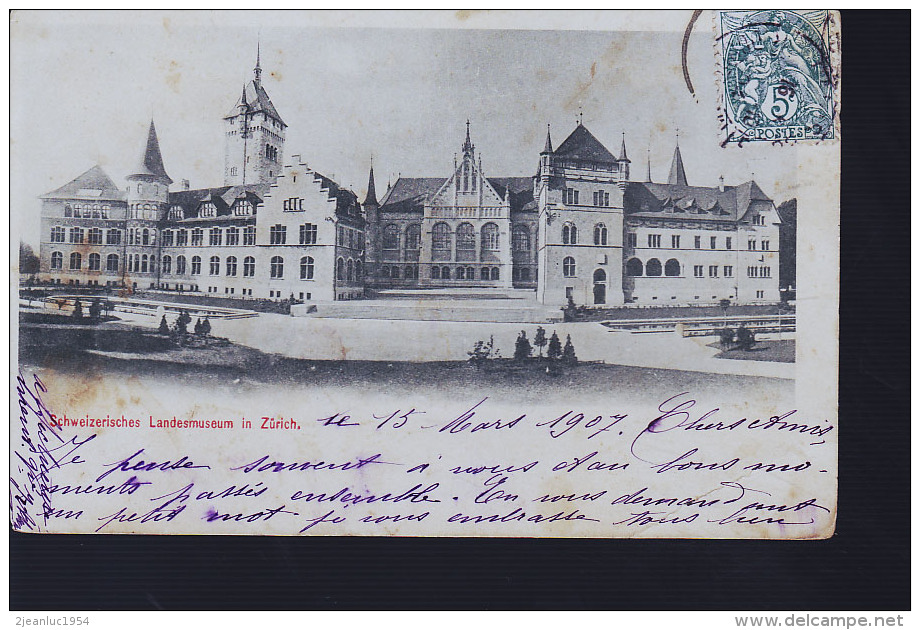 5
POSTES
Schweizerisches Landesmuseum in Zürich.
le 15 Mars 1907. Chers Amis,
Je pense souvent à vous et au bons mo-
ments passés ensemble. En vous demandant
un petit mot je vous embrasse tous bien
2jeanluc1954
www.delcampe.net